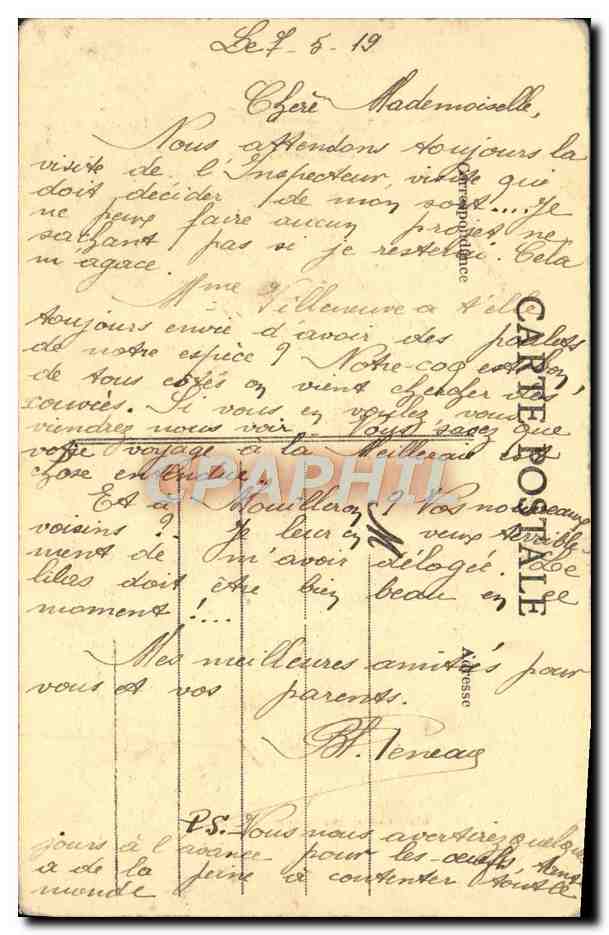 Le 7-5-19
Chère Mademoiselle,
Nous attendons toujours la
visite de l'Inspecteur, visite qui
doit décider de mon sort.... Je
ne peux faire aucun projet ne
sachant pas si je resterai. Cela
m'agace.
Mme Villeneuve a t'elle
toujours envie d'avoir des poulets
de notre espèce? Notre coq est bon,
de tous côtés on vient chercher des
couvées. Si vous en voulez vous
viendrez nous voir. Vous savez que
votre voyage à la Meilleraie est
chose entendue.
Et à Mouilleron? Vos nouveaux
voisins? Je leur en veux terrible
ment de m'avoir délogée. Le
lilas doit être bien beau en ce
moment!....
Mes meilleures amitiés pour
vous et vos parents.
P.S. Vous nous avertirez quelques
jours à l'avance pour les oeufs, tant
a de la peine à contenter tout le
monde
CARTE POSTALE
Correspondance
Adresse
M
CPAPHIL